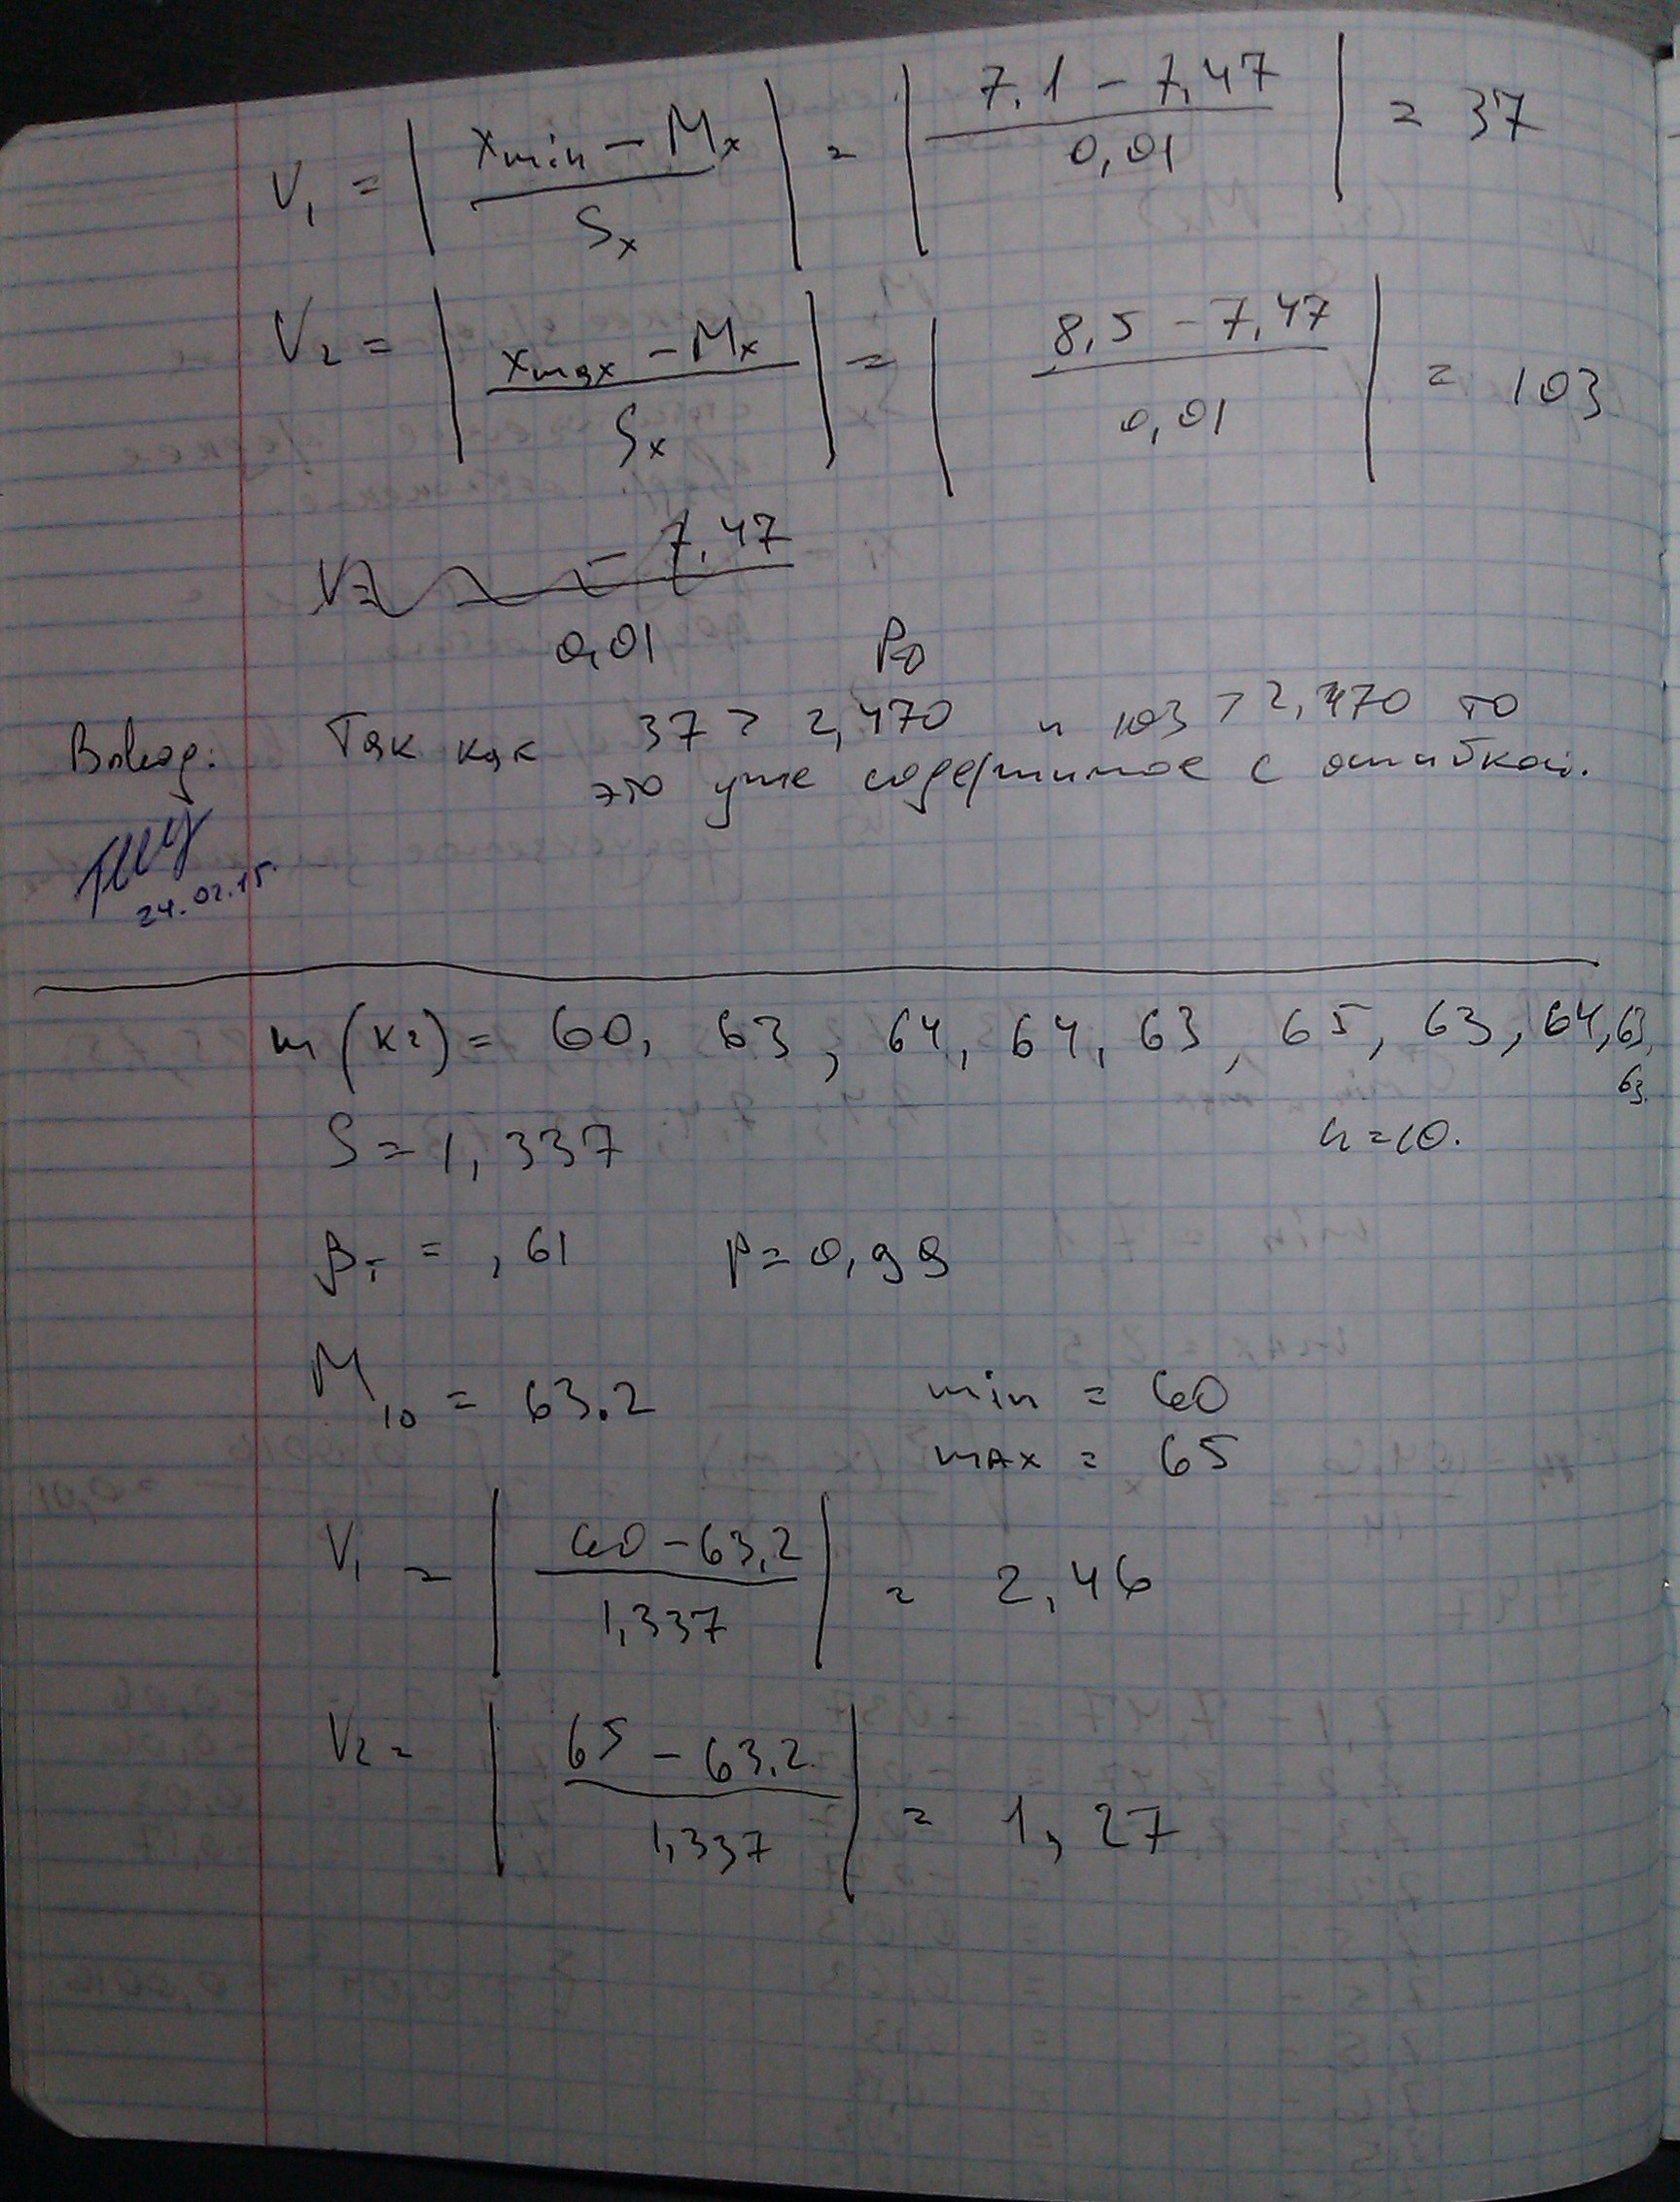 V₁ = | (xmin − Mx) / Sx | = | (7.1 − 7,47) / 0,01 | = 37
V₂ = | (xmax − Mx) / Sx | = | (8,5 − 7,47) / 0,01 | = 103
− 7,47
0,01
Вывод: Так как 37 > 2,470 и 103 > 2,470 то
это уже содержимое с ошибкой.
24.02.15.
m(кг) = 60, 63, 64, 64, 63, 65, 63, 64, 63,
63.
S = 1,337 n=10.
βт = ,61 p = 0,99
M₁₀ = 63.2 min = 60
max = 65
V₁ = | (60 − 63,2) / 1,337 | = 2,46
V₂ = | (65 − 63.2) / 1,337 | = 1,27